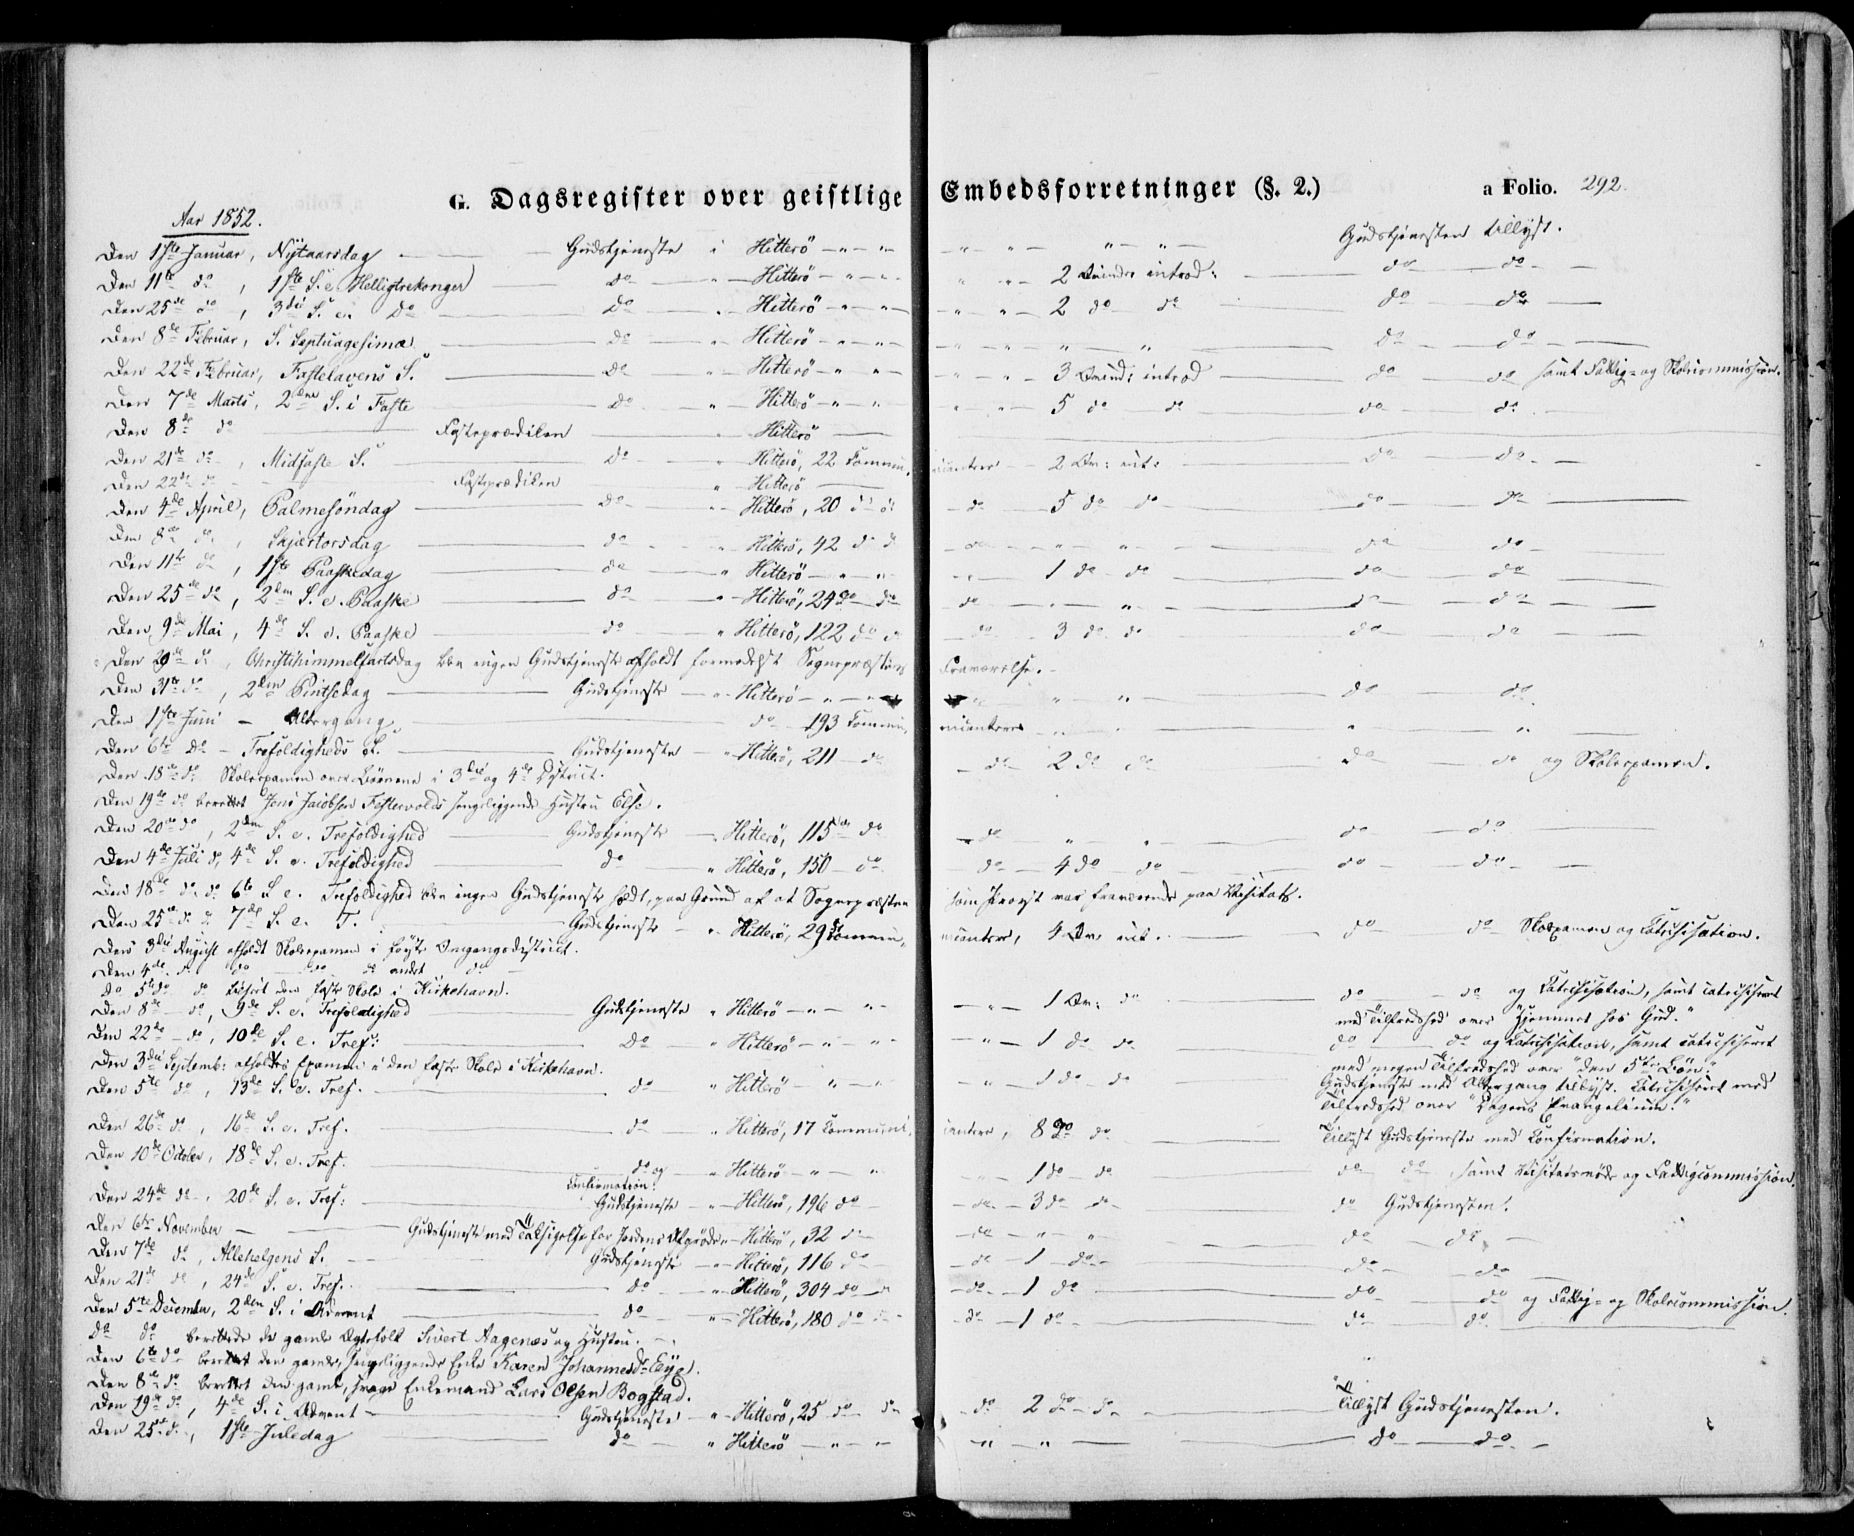 G. Dagsregister over geistlige Embedsforretninger (§. 2.) a Folio. 292.
Aar 1852.
Den 1ste Januar, Nytaarsdag — Gudstjeneste i Hitterö — " — " — " — " — " — " — Gudstjenesten tillyst.
Den 11te do, 1ste S. e. Helligtrekonger — do — " — Hitterö — " — " — " — " — 2 Qvinder introd: — do — do —
Den 25de do, 3die S. e. do — do — " — Hitterö — " — " — " — " — 2 do do — do — do —
Den 8de Februar, S. Septuagesima — do — " — Hitterö — " — " — " — " — " — " — do — do —
Den 22de Februar, Fastelavens S. — do — " — Hitterö — " — " — " — " — 3 Qvind: introd — do — do samt Fattig- og Skolecommission.
Den 7de Marts, 2den S. i Faste — do — " — Hitterö — " — " — " — " — 5 do do — do — do —
Den 8de do — Fasteprædiken — " Hitterö —
Den 21de do, Midfaste S. — do — " Hitterö, 22 Communicantere — 2 Qv: int: — do — do —
Den 22de do — Fasteprædiken — " Hitterö —
Den 4de April, Palmesöndag — do — " — Hitterö, 20 do do — do — 5 do do — do — do —
Den 8de do, Skjærtorsdag — do — " — Hitterö, 42 do do — do — " — " — do — do —
Den 11te do, 1ste Paaskedag — do — " Hitterö — " — " — " — 1 do do — do — do —
Den 25de do, 2den S. e. Paaske — do — " — Hitterö, 24 do do — do — " — " — do — do —
Den 9de Mai, 4de S. e. Paaske — do — " Hitterö, 122 do do — do — 3 do do — do — do —
Den 20de do, Christi himmelfartsdag blev ingen Gudstjeneste afholdt formedelst Sognepræstens Fraværelse.
Den 31te do, 2den Pintsedag — Gudstjeneste — " — Hitterö — " — " — " — " — do — do.
Den 1ste Juni — Altergang — do — 193 Communicantere " — " — "
Den 6te do — Trefoldigheds S. — Gudstjeneste — " Hitterö, 211 do — do — 2 do do — do — do og Skoleexamen.
Den 18de do Skoleexamen over Börnene i 3die og 4de District.
Den 19de do berettet Jens Jacobsen Festervolds sengeliggende Hustru Else.
Den 20de do, 2den S. e. Trefoldighed — Gudstjeneste — " Hitterö, 115 do do — do — " — " — do — do —
Den 4de Juli do, 4de S. e. Trefoldighed — do — " Hitterö, 150 do — do — 4 do do — do — do —
Den 18de do do 6te S. e. Trefoldighed blev ingen Gudstjeneste holdt, paa Grund af at Sognepræsten som Provst var fraværende paa Visitats.
Den 25de do do 7de S. e. T. — Gudstjeneste — " Hitterö, 29 Communicantere, 4 Qv. int. — do — do Skoleexamen og Catechisation.
Den 3die August afholdt Skoleexamen i förste Omgangsdistrict.
Den 4de do do — do do andet do —
do 5te do do besögt den faste Skole i Kirkehavn.
Den 8de do, 9de S. e. Trefoldighed — Gudstjeneste " Hitterö — " — " — " — 1 Qv: do — do — do og Catechisation, samt catechiseret
med Tilfredshed over "Hjemmet hos Gud."
Den 22de do, 10de S. e. Tref: — do — " Hitterö — " — " — " — 1 do do — do — do og Catechisation, samt catechiseret
med megen Tilfredshed over "den 5te Bön."
Den 3die Septemb: afholdtes Examen i den faste Skole i Kirkehavn.
Den 5te do, 13de S. e. Tref. — do — " Hitterö " — " — " — 1 do do — Gudstjeneste med Altergang tillyst. Catechiseret med
Tilfredshed over "Dagens Evangelium."
Den 26de do, 16de S. e. Tref. — do — " Hitterö, 17 Communicantere, 8 do do — Tillyst Gudstjeneste med Confirmation.
Den 10de October, 18de S. e. Tref. — do og Confirmation. " Hitterö — " — " — " — 1 do do — do do samt Visitatsmöde og Fattigcommission.
Den 24de do, 20de S. e. Tref: — Gudstjeneste " — Hitterö, 196 do — do — 3 do do — do Gudstjenesten.
Den 6te November — Gudstjeneste med Taksigelse for Jordens Afgröde " — Hitterö, 32 do — do — " — " — do — do —
Den 7de do, Allehelgens S. — Gudstjeneste — " — Hitterö, 116 do — do — 1 do — do — do —
Den 21de do, 24de S. e. Tref. — do — " — Hitterö, 304 do do — do — 1 do — do — do og Fattig- og Skolecommission.
Den 5te December, 2den S. i Advent — do — " — Hitterö, 180 do do — do — 1 do — do — do —
do do berettede de gamle Ægtefolk Sivert Aagenæs og Hustru.
Den 6te do berettet den gamle, sengeliggende Enke Karen Johannesdr Eye.
Den 8de do berettet den gamle, svage Enkemand Lars Olsen Bogstad.
Den 19de do, 4de S. i Advent — Gudstjeneste — " — Hitterö, 25 do do — do 2 do do — Tillyst Gudstjenesten.
Den 25de do, 1ste Juledag — do — " Hitterö — " — " — " — " — do — do —